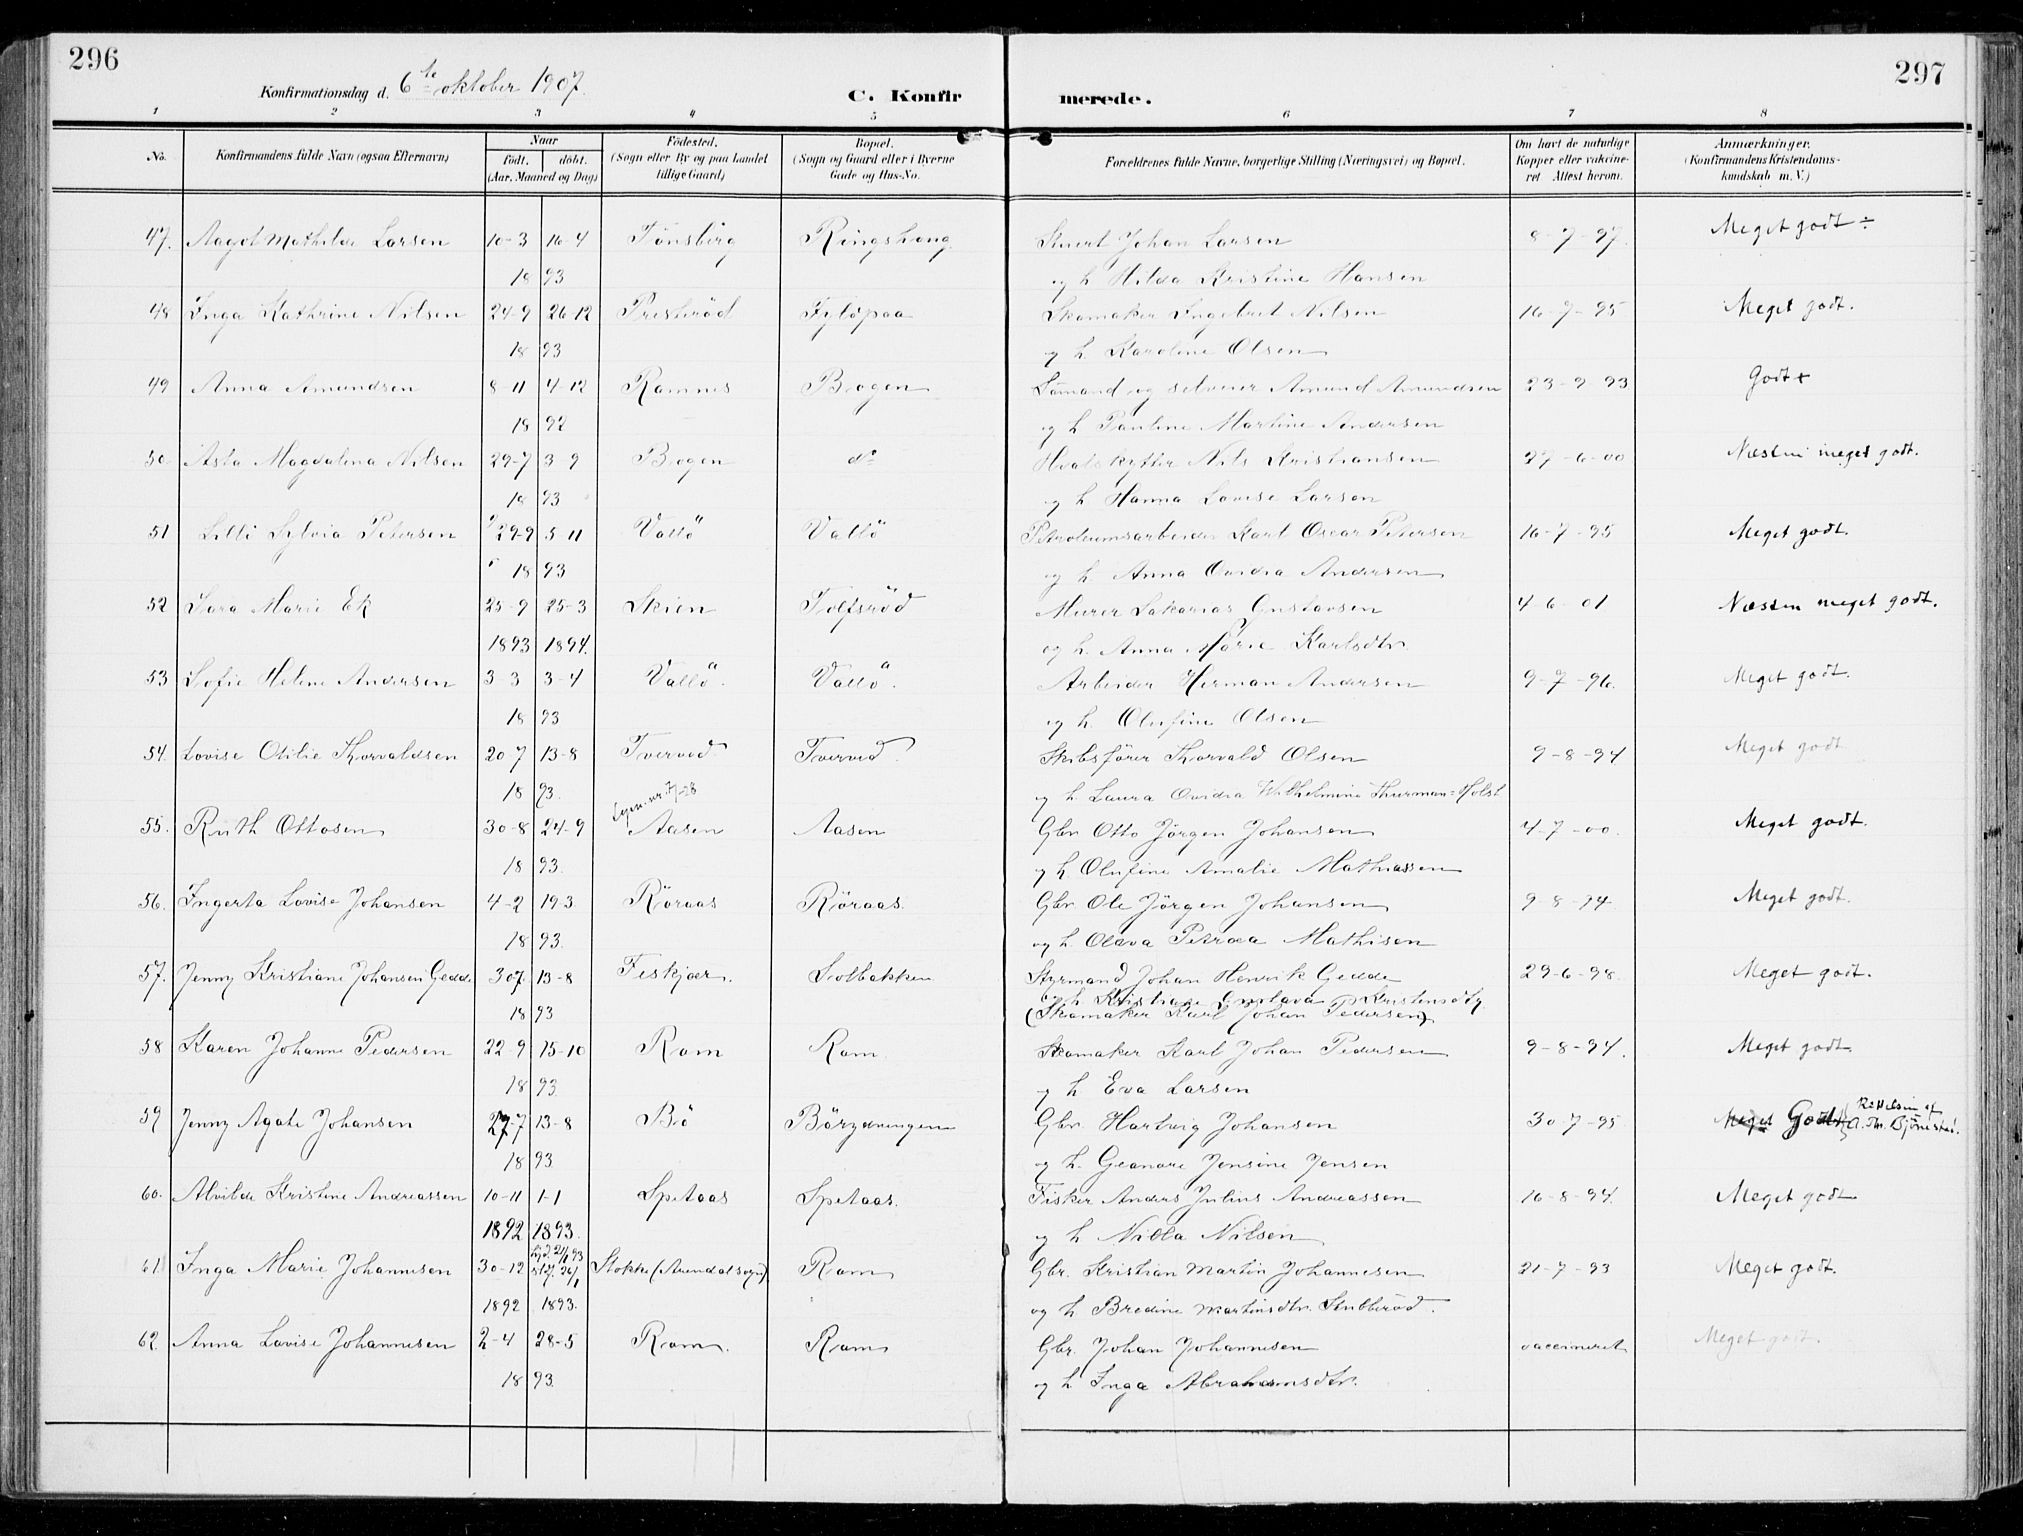 296
297
Konfirmationsdag d. 6te oktober 1907.
C. Konfirmerede.
1 2 3 4 5 6 7 8
No.
Konfirmandens fulde Navn (ogsaa Efternavn)
Naar
födt. döbt.
(Aar, Maaned og Dag)
Födested.
(Sogn eller By og paa Landet
tillige Gaard)
Bopæl.
(Sogn og Gaard eller i Byerne
Gade og Hus-No.
Forældrenes fulde Navne, borgerlige Stilling (Næringsvei) og Bopæl.
Om havt de naturlige
Kopper eller vakcine-
ret Attest herom.
Anmærkninger.
(Konfirmandens Kristendoms-
kundskab m. V.)
47. Aagot Mathilde Larsen 10-3 16-4 Tönsberg Ringshaug Stuert Johan Larsen 8-7-97. Meget godt ÷
18 93 og h Hilda Kristine Hansen
48 Inga Kathrine Nilsen 24-9 26-12 Presteröd Fylpaa Skomaker Ingebret Nilsen 16-7-95 Meget godt.
18 93 og h Karoline Olsen
49 Anna Amundsen 8-11 4-12 Ramnes Bogen Sömand og selveier Amund Amundsen 23-9-93 Godt+
18 92 og h Pauline Martine Andersen
50. Asta Magdalena Nilsen 29-7 3-9 Bogen do Hvalskytter Nils Kristiansen 27-6-00 Næsten meget godt.
18 93 og h Hanna Lovise Larsen
51 Lilli Sylvia Petersen 29-9 5-11 Vallö Vallö Petroleumsarbeider Karl Oscar Petersen 16-7-95 Meget godt.
18 93 og h. Anna Ovidia Andersen
52 Sara Marie Ek 25-9 25-3 Skien Tolfsröd Murer Sakarias Gustavsen 4-6-01 Næsten meget godt.
1893 1894. og h. Anna Marie Karlsdtr.
53 Sofie Helene Andersen 3-3 3-4 Vallö. Vallö. Arbeider Herman Andersen 9-7-96. Meget godt.
18 93 og h. Olufine Olsen
54. Lovise Otilie Thorvaldsen 20-7 13-8 Tverved Tverved Skibsförer Thorvald Olsen 9-8-94 Meget godt
18 93. og h. Laura Ovidia Wilhelmine Thurman=Holst
55. Ruth Ottosen 30-8 24-9 Aasen Aasen Gbr. Otto Jörgen Johansen 4-7-00. Meget godt.
18 93. og h. Olufine Amalie Mathiassen
56. Ingerta Lovise Johansen 4-2 19-3. Röraas Röraas. Gbr. Ole Jörgen Johansen 9-8-94. Meget godt.
18 93. og h. Olava Petrea Mathisen
57. Jenny Kristiane Johansen Gedde 30-7. 13-8 Feskjær. Solbakken Styrmand Johan Henrik Gedde 29-6-98. Meget godt.
18 93 og h Kristiane Gustava Kristensdtr.
(Skomaker Karl Johan Pedersen)
58 Karen Johanne Pedersen 22-9 15-10 Ram Ram Skomaker Karl Johan Pedersen 9-8-94. Meget godt.
18 93. og h Eva Larsen
59 Jenny Agate Johansen 27-7 13-8 Bö Bö Gbr. Hartvig Johansen 30-7-95 Meget Godt
18 93. og h. Jensine Jensen
60. Alvilde Kristine Andreassen 10-11 1-1 Spetaas Spetaas. Fisker Anders Julius Andreassen 16-8-94 Meget godt
1892 1893. og h Nilla Nilsen
61. Inga Marie Johannesen 30-12 Stokke (Arendal sogn) Ram Gbr. Kristian Martin Johannesen 21-7-93 Meget godt.
1892 1893. og h Bredine Martinsdtr. Stubberöd.
62. Anna Lovise Johannesen 2-4 28-5 Ram. Ram Gbr. Johan Johannesen vaccineret Meget godt.
18 93. og h Inga Abrahamsdtr.